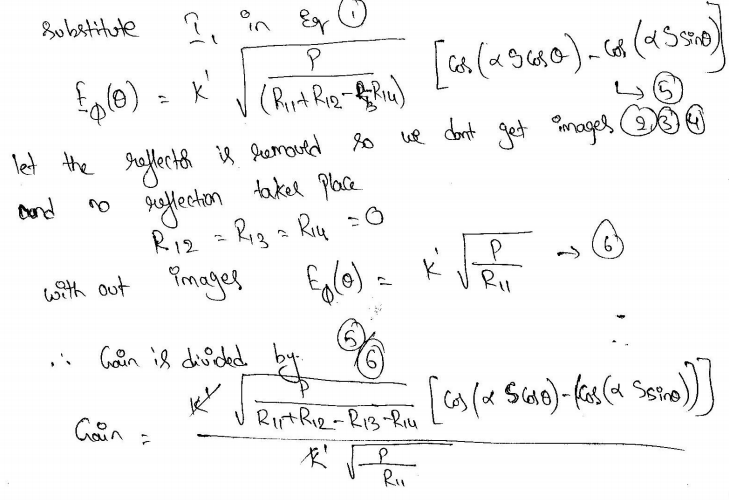 substitute I₁ in Eq ①
E_ϕ(θ) = K' √(P / (R₁₁+R₁₂-R₁₃-R₁₄)) [Cos(αScosθ) - Cos(αSsinθ)]
↳ ⑤
let the reflector is removed so we dont get images ② ③ ④
and no reflection takes place
R₁₂ = R₁₃ = R₁₄ = 0
with out images E_ϕ(θ) = K' √(P / R₁₁) → ⑥
∴ Gain is divided by ⑤/⑥
Gain = K' √(P / R₁₁+R₁₂-R₁₃-R₁₄) [Cos(αScosθ) - (Cos(αSsinθ))] / K' √(P / R₁₁)